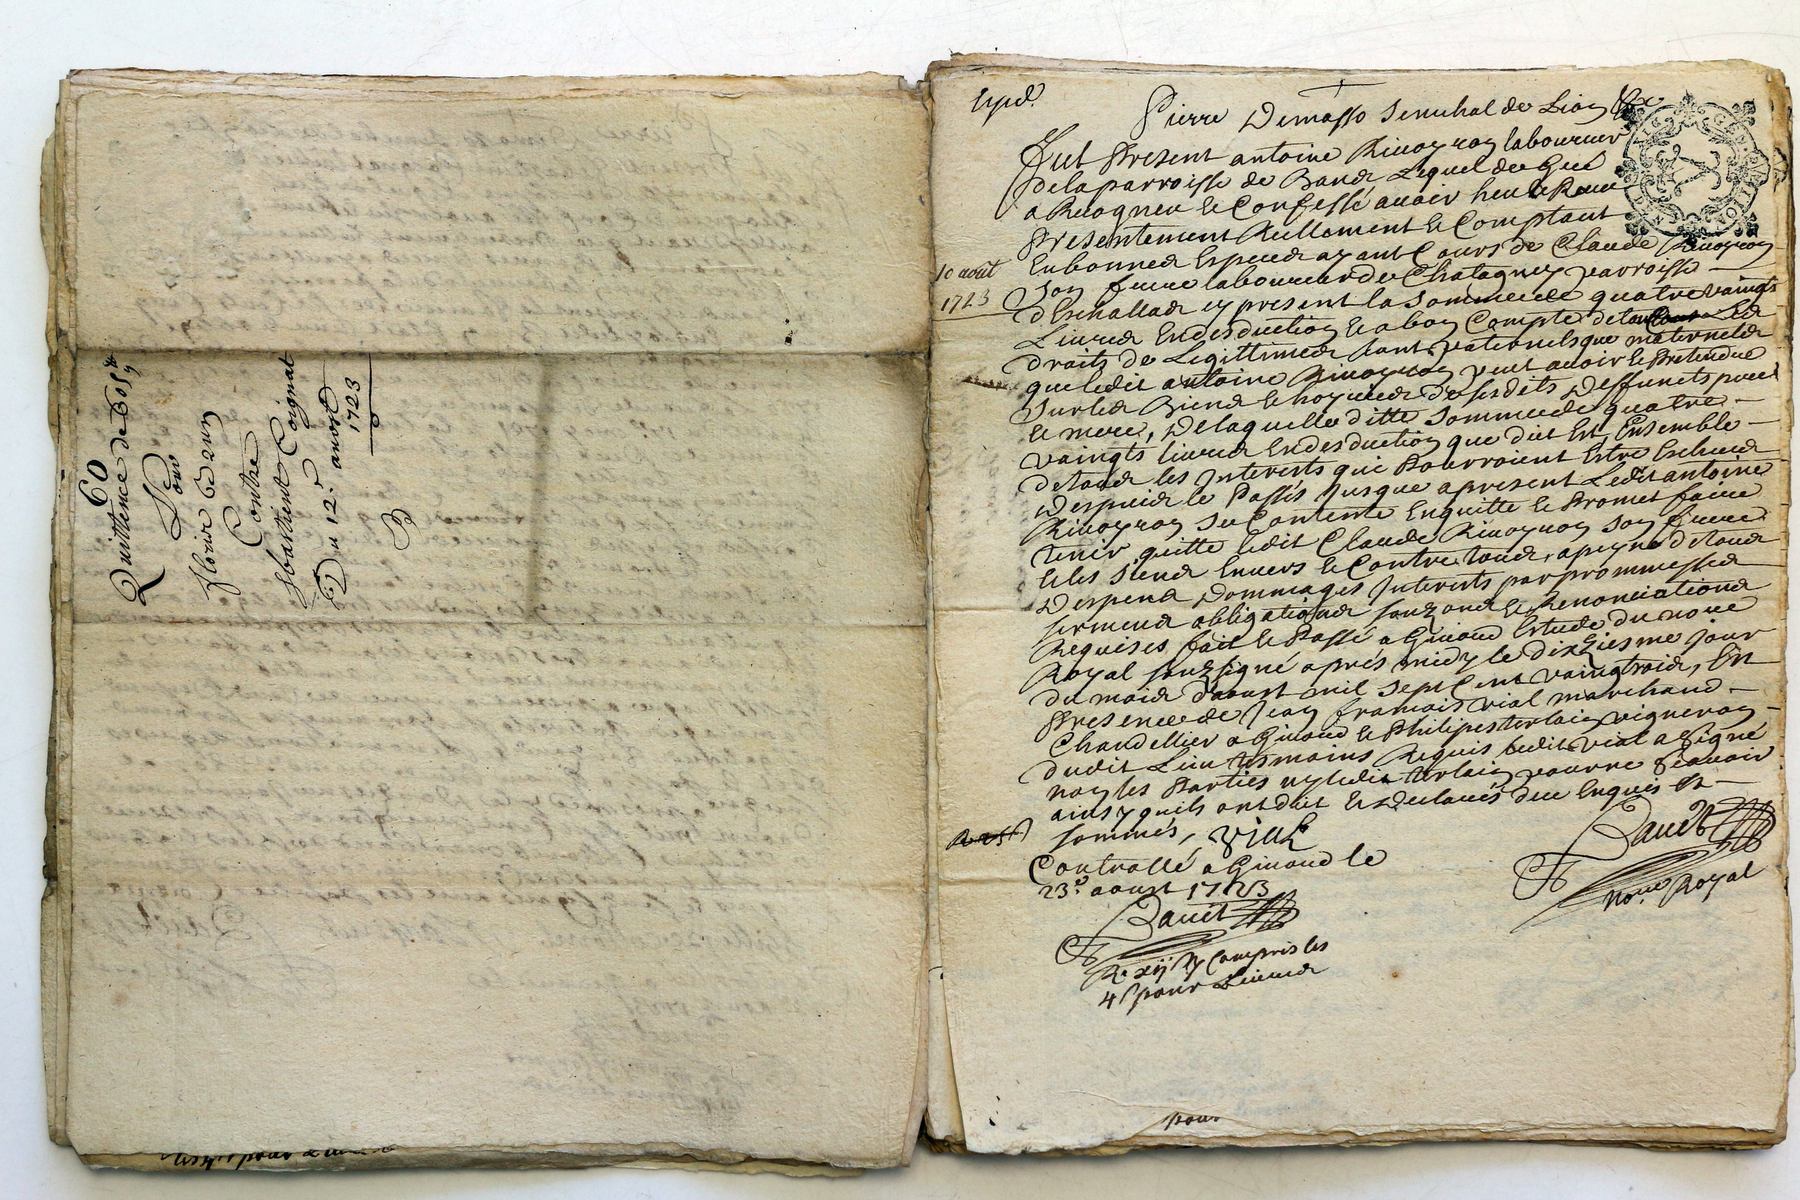 60
Quittence de 60# 5s
Pour
fleurie
Contre
Coignat
Du 12e aoust
1723
B
Expd.
Pierre Demasso Senechal de Lion &a.
Fut Present antoine Rivoyron laboureur
dela parroisse de Lequel de Gré
a Recogneu & Confessé avoir heu & Receu
Presentement Reellement & Comptant
En bonnes Especes ayant Cours de Claude Rivoyron
son frere laboureur de Chatagney parroisse
10 aoust
1723
d'Eschallas cy present la somme de quatre vaingts
Livres En desduction & a bon Compte de Les
droits de Legittimes tant paternels que maternels
que ledit antoine Rivoyron peut avoir & Pretendre
Sur les Biens & hoyries desdits Deffuncts pere
& mere, De laquelle ditte somme de quatre
vaingts livres En desduction que dit Est Ensemble
de tous les Interests qui Pourroient Estre Escheus
Despuis le Passés Jusque a present Ledit antoine
Rivoyron se Contente Enquitte & Promet faire
tenir quitte ledit Claude Rivoyron son frere
& les siens Envers & Contre tous, a peyne de tous
Despens Dommages Interests par prommesses
serments obligations & Renonciations
Requises fait & Passé a Givord Estude du nore
Royal souzsigné après midy le dixziesme jour
du mois d'aoust mil sept Cent vaingtrois, En
Presence de Jean françois vial marchand
Chandellier a Givord & Philipes terlain vigneron
dudit Lieu tesmoins Requis ledit vial a Signé
non les Parties ny ledit terlain pour ne Sçavoir
ainsy quils ont dit & declarés de ce Enquis &
sommés, vial
Controllé a Givord le
23e aoust 1723
nore Royal
Re xij s Compris les
4 s pour Livres
pour